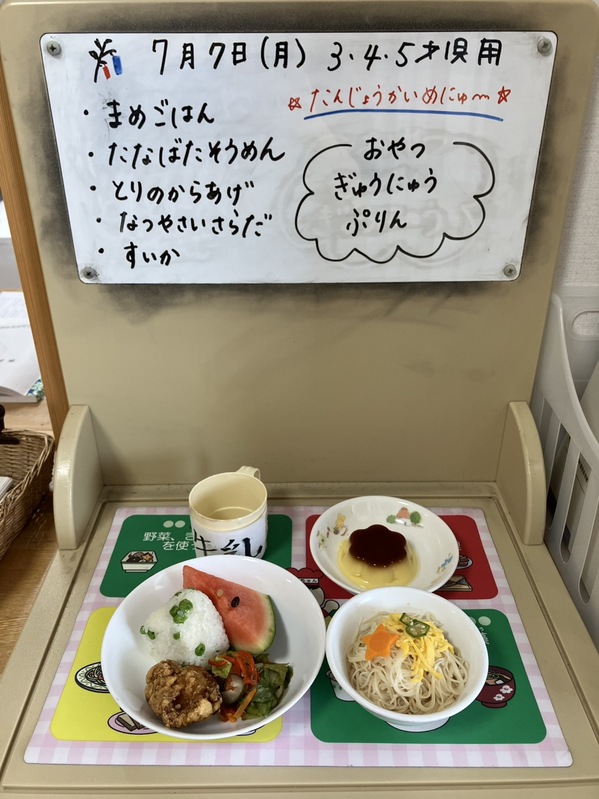 7月7日(月) 3.4.5才児用
☆たんじょうかいめにゅ〜☆
・まめごはん
・たなばたそうめん
・とりのからあげ
・なつやさいさらだ
・すいか
おやつ
ぎゅうにゅう
ぷりん
野菜、き
を使
牛乳